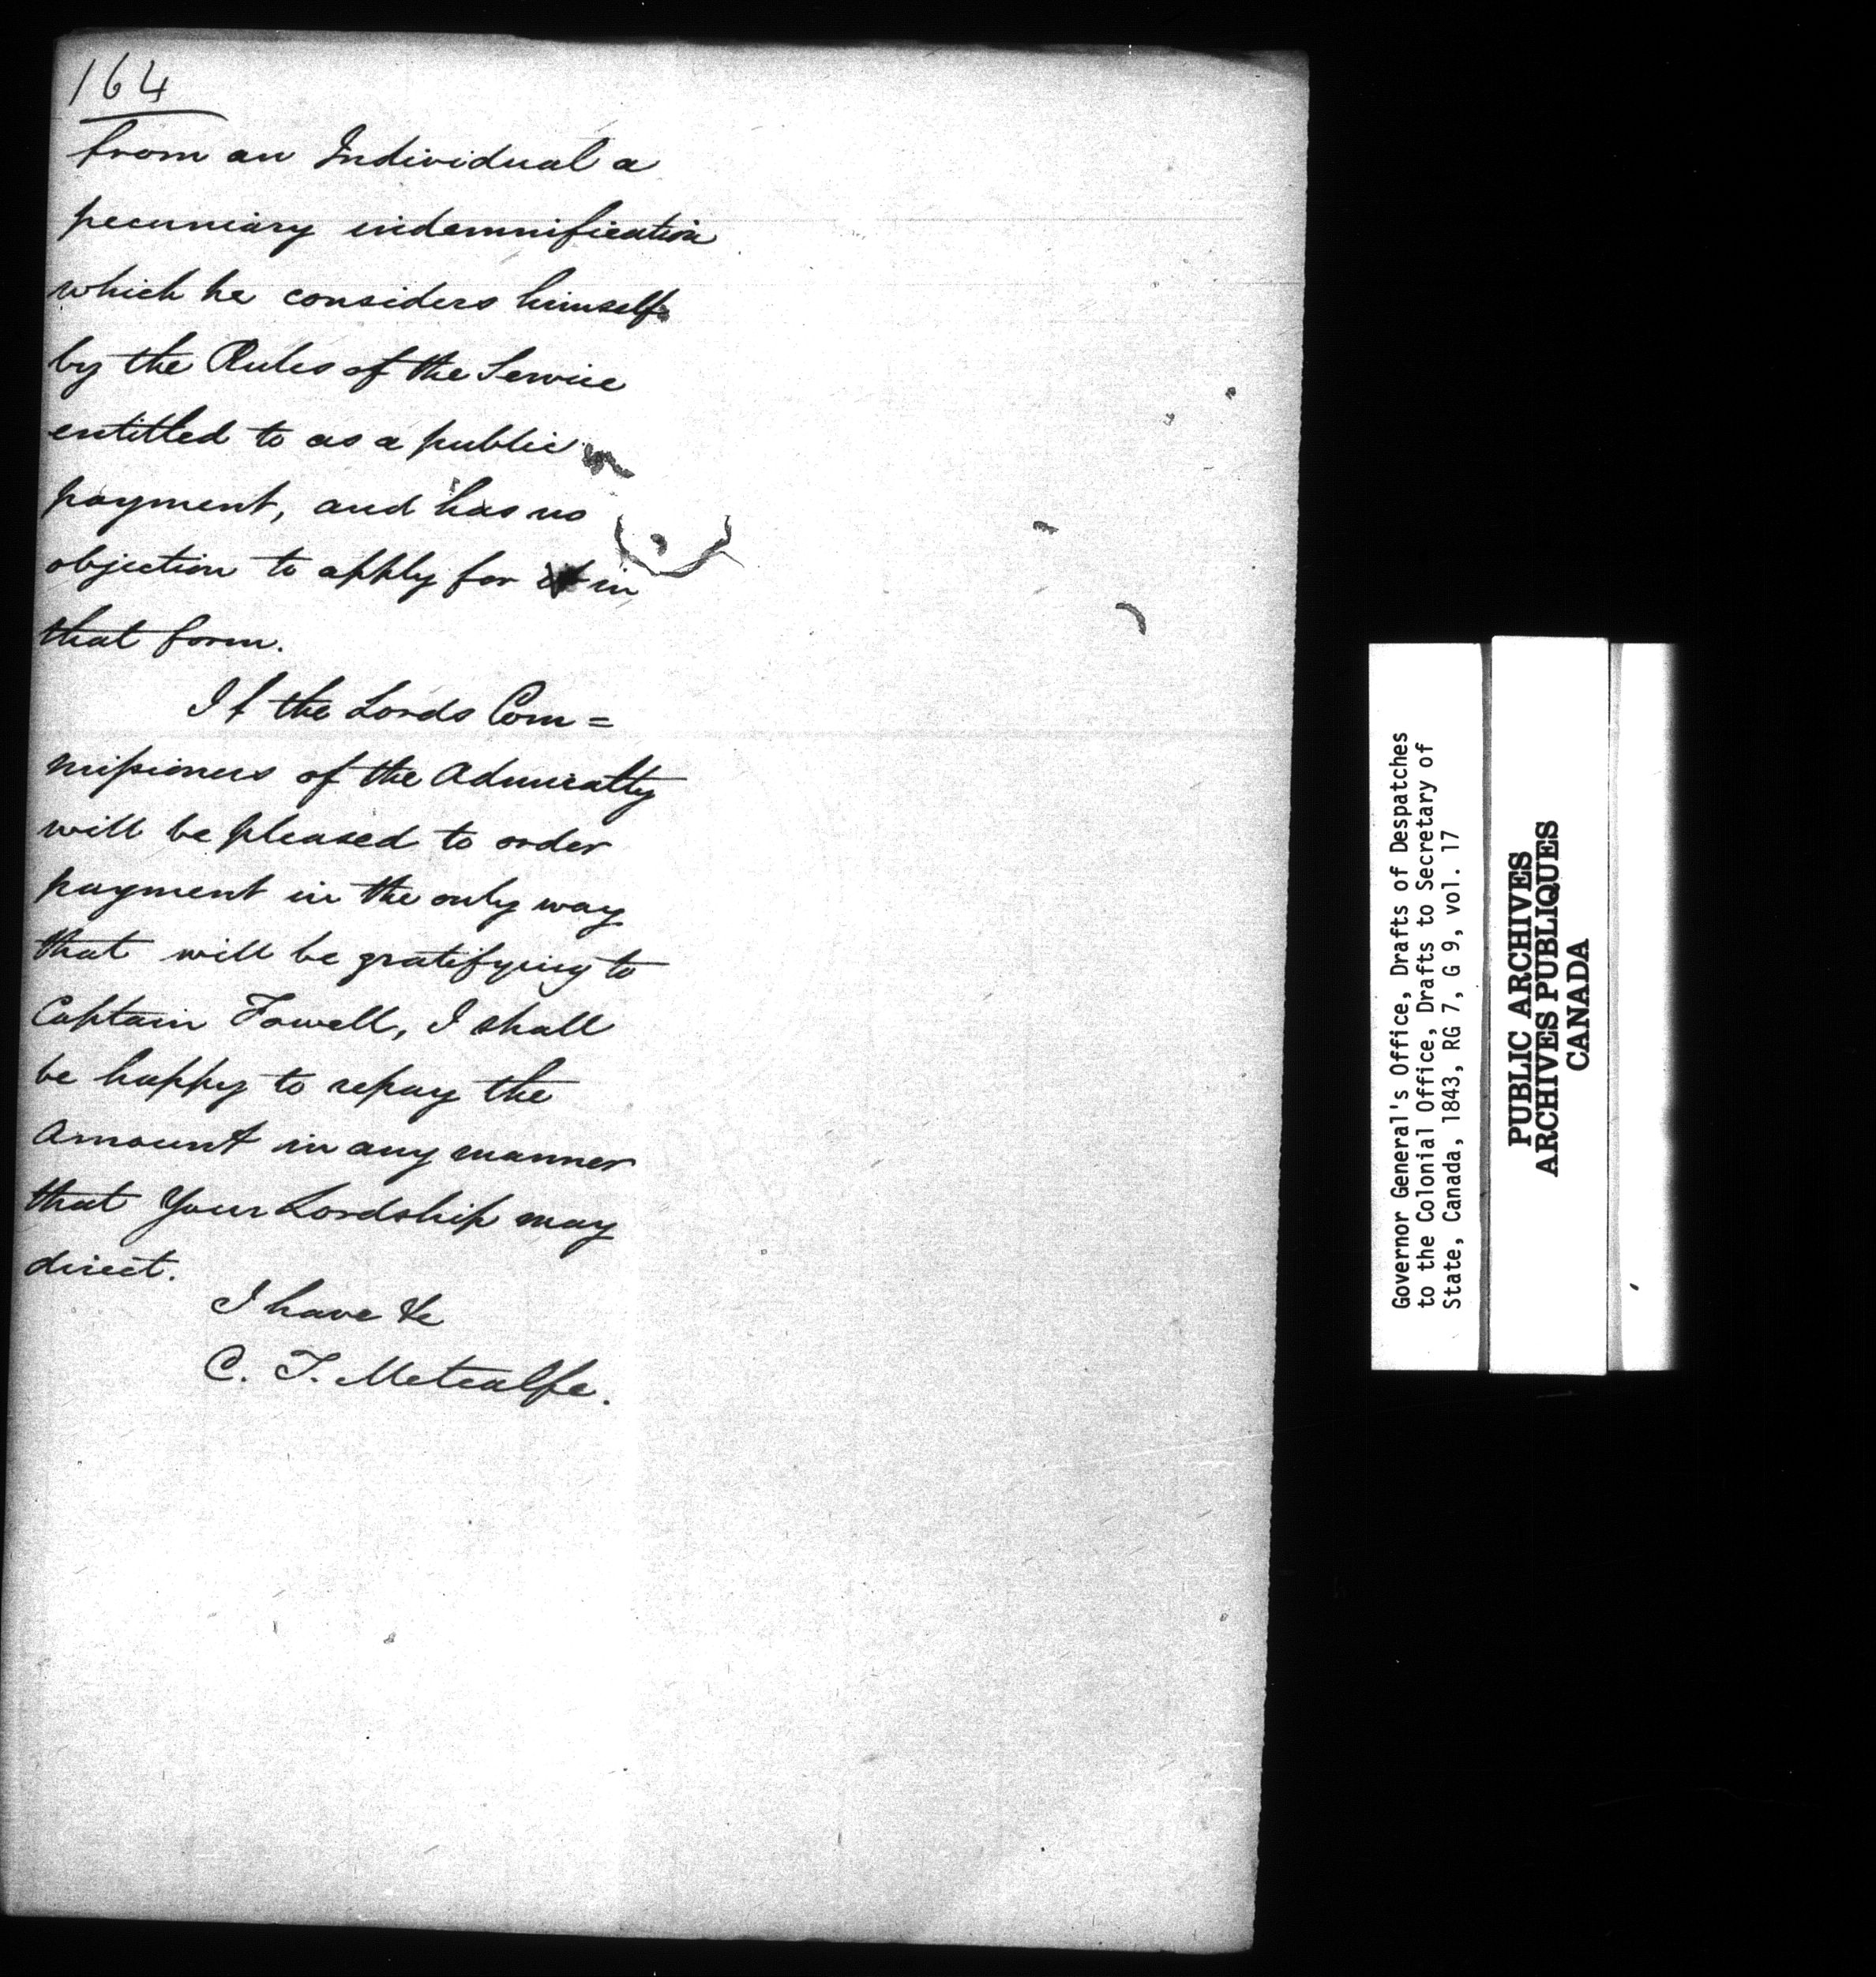 164
from an Individual a
pecuniary indemnification
which he considers himself
by the Rules of the Service
entitled to as a public
payment, and has no
objection to apply for it in
that form.
If the Lords Com=
missioners of the Admiralty
will be pleased to order
payment in the only way
that will be gratifying to
Captain Fowell, I shall
be happy to repay the
Amount in any manner
that Your Lordship may
direct.
I have &c
C. T. Metcalfe.
Governor General's Office, Drafts of Despatches
to the Colonial Office, Drafts to Secretary of
State, Canada, 1843, RG 7, G 9, vol. 17
PUBLIC ARCHIVES
ARCHIVES PUBLIQUES
CANADA